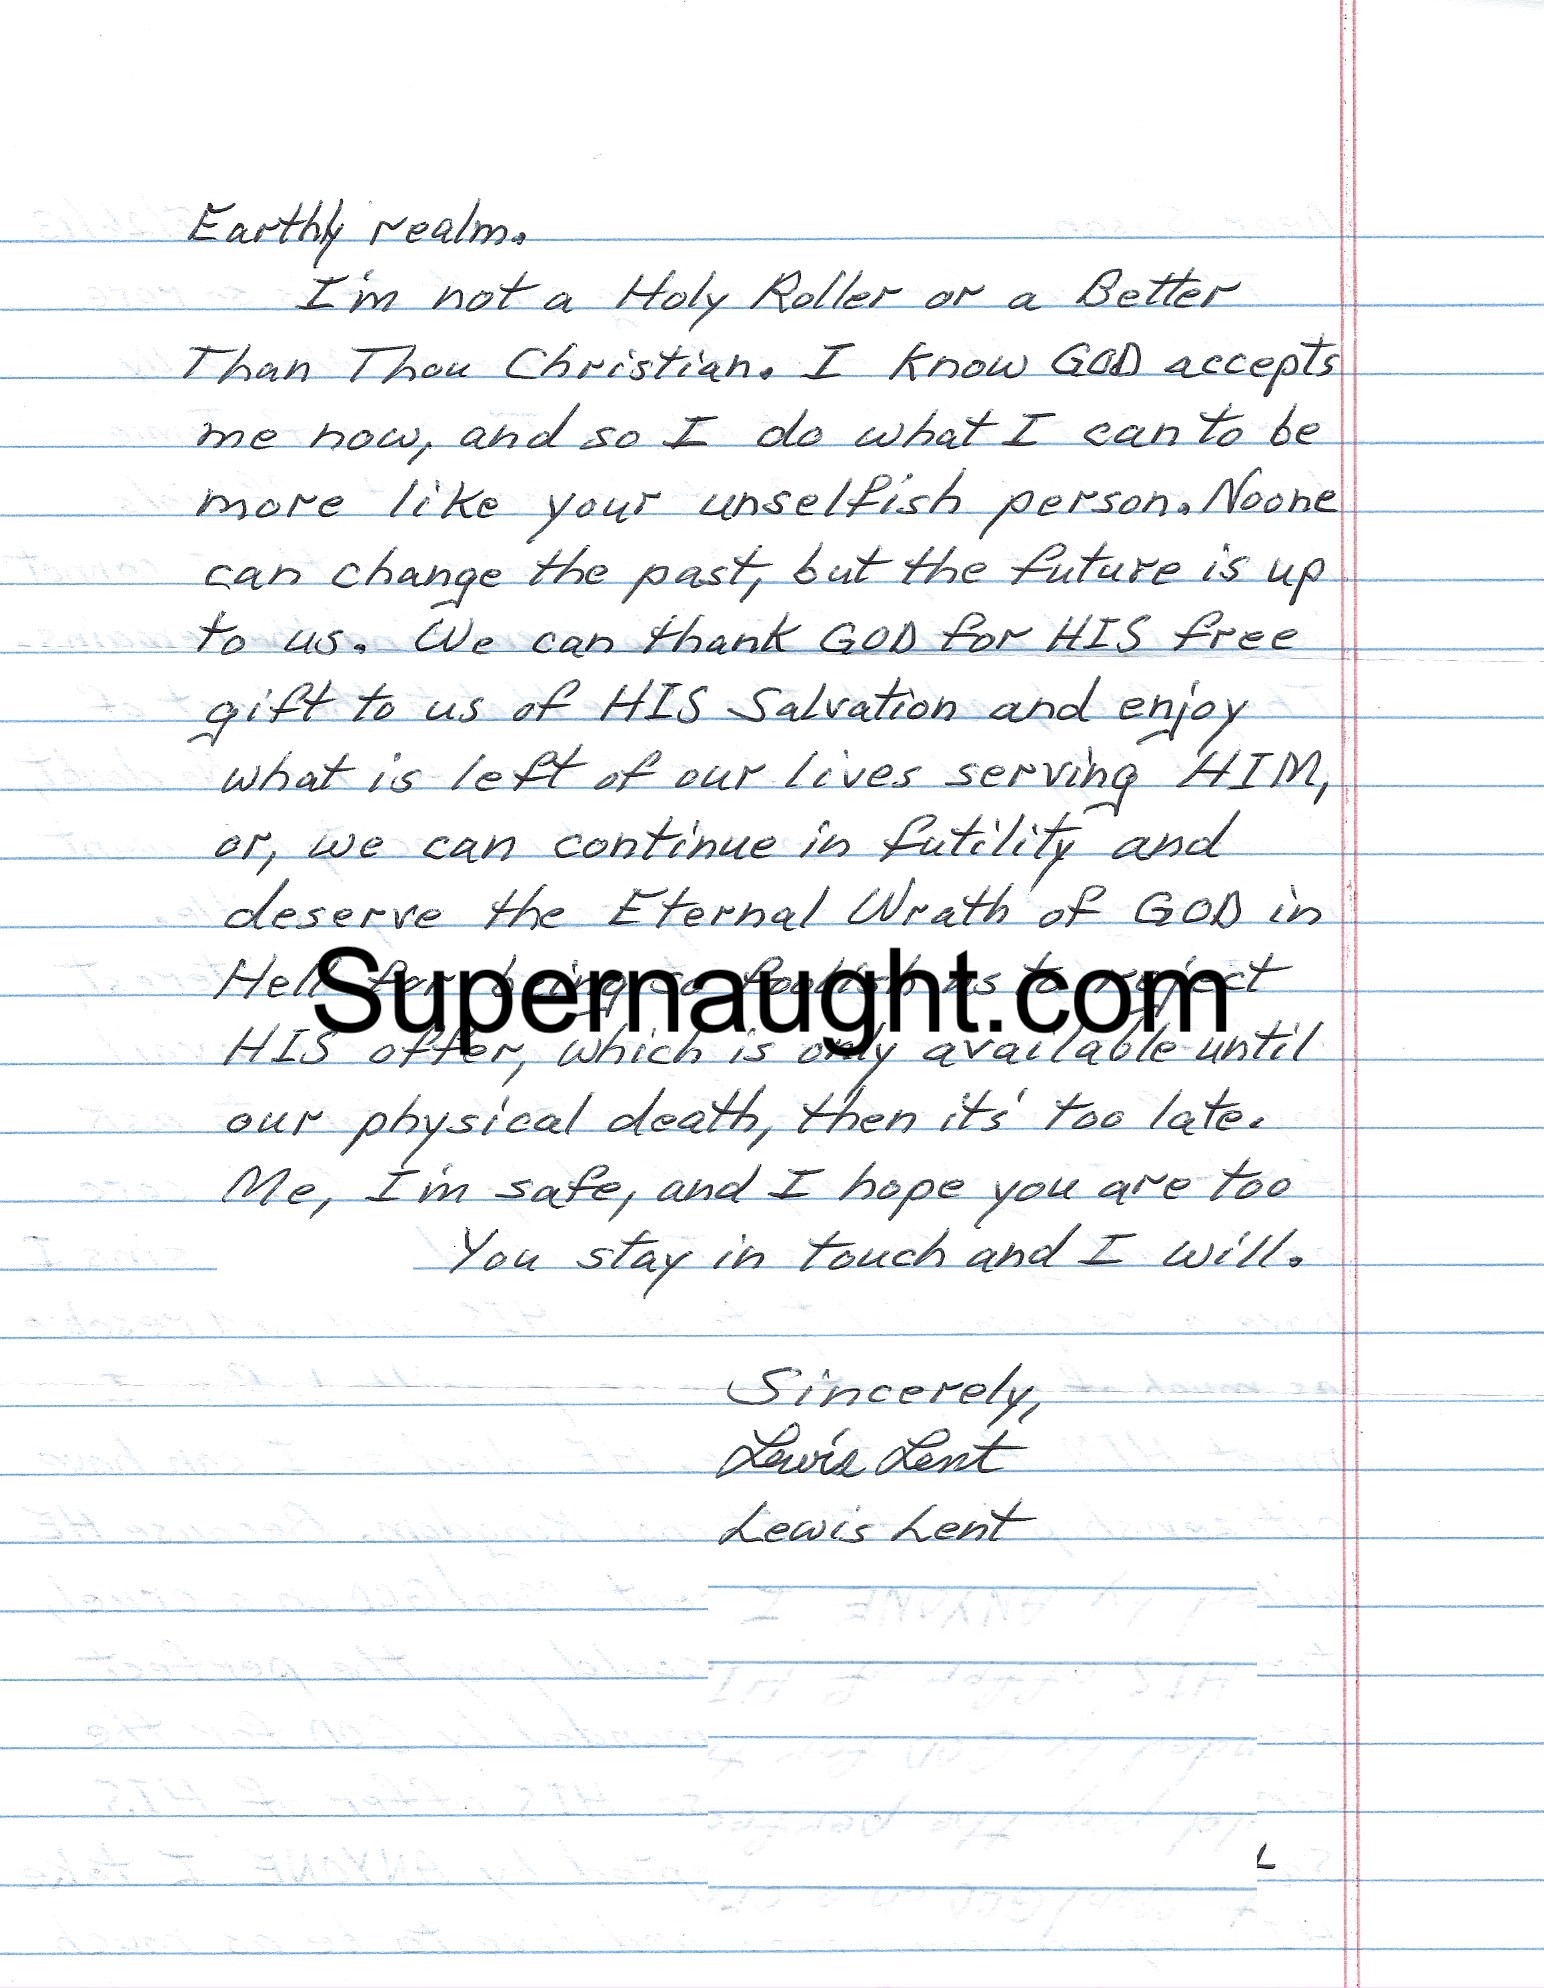 Earthly realm.
I'm not a Holy Roller or a Better
Than Thou Christian. I know GOD accepts
me now, and so I do what I can to be
more like your unselfish person. Noone
can change the past, but the future is up
to us. We can thank GOD for HIS free
gift to us of HIS Salvation and enjoy
what is left of our lives serving HIM,
or, we can continue in futility and
deserve the Eternal Wrath of GOD in
Hell for being so foolish as to reject
Supernaught.com
HIS offer, which is only available until
our physical death, then its' too late.
Me, I'm safe, and I hope you are too
You stay in touch and I will.
Sincerely,
Lewis Lent
Lewis Lent